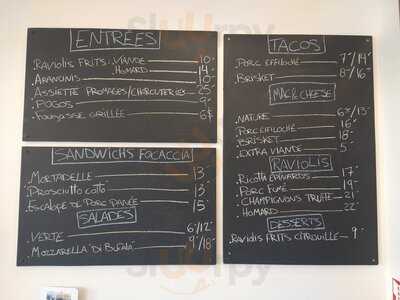 ENTRÉES
RAVIOLIS FRITS: VIANDE 10
HOMARD 14
ARANCINIS 10
ASSIETTE FROMAGES/CHARCUTERIES 25
POGOS 9
FOUGASSE GRILLÉE 6
SANDWICHS FOCACCIA
MORTADELLE 13
PROSCIUTTO COTTO 13
ESCALOPE DE PORC PANÉE 15
SALADES
VERTE 6/12
MOZZARELLA DI BUFALA 9/18
TACOS
PORC EFFILOCHÉ 7/14
BRISKET 8/16
MAC & CHEESE
NATURE 6/13
PORC EFFILOCHÉ 16
BRISKET 18
EXTRA VIANDE 5
RAVIOLIS
RICOTTA EPINARDS 17
PORC FUMÉ 19
CHAMPIGNONS TRUFFE 21
HOMARD 22
DESSERTS
RAVIOLIS FRITS CITROUILLE 9
Sluurpy